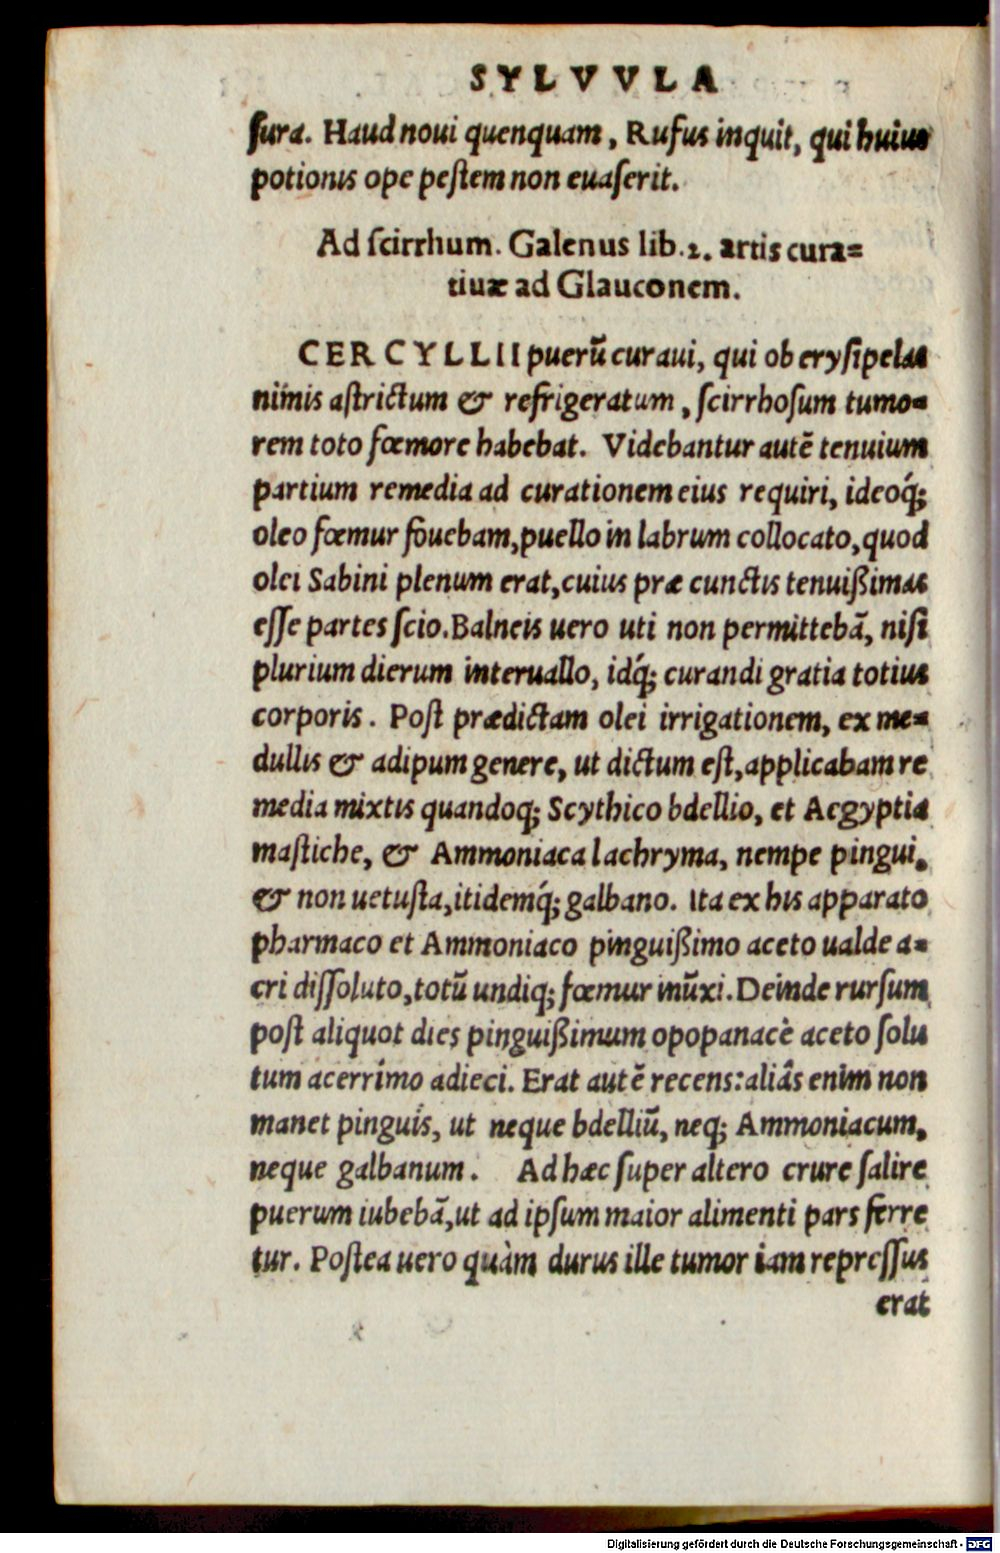 SYLVVLA
ſura. Haud noui quenquam, Rufus inquit, qui huius
potionis ope peſtem non euaſerit.
Ad ſcirrhum. Galenus lib. 2. artis cura=
tiuæ ad Glauconem.
CERCYLLII puerū curaui, qui ob eryſipelas
nimis aſtrictum & refrigeratum, ſcirrhoſum tumo=
rem toto fœmore habebat. Videbantur autē tenuium
partium remedia ad curationem eius requiri, ideoq́;
oleo fœmur fouebam, puello in labrum collocato, quod
olei Sabini plenum erat, cuius præ cunctis tenuißimas
eſſe partes ſcio. Balneis uero uti non permittebā, niſi
plurium dierum interuallo, idq́; curandi gratia totius
corporis. Poſt prædictam olei irrigationem, ex me=
dullis & adipum genere, ut dictum eſt, applicabam re
media mixtis quandoq; Scythico bdellio, et Aegyptia
maſtiche, & Ammoniaca lachryma, nempe pingui,
& non uetuſta, itidemq́; galbano. Ita ex his apparato
pharmaco et Ammoniaco pinguißimo aceto ualde a=
cri diſſoluto, totū undiq; fœmur inūxi. Deinde rurſum
poſt aliquot dies pinguißimum opopanacē aceto ſolu
tum acerrimo adieci. Erat autē recens: aliâs enim non
manet pinguis, ut neque bdelliū, neq; Ammoniacum,
neque galbanum. Ad hæc ſuper altero crure ſalire
puerum iubebā, ut ad ipſum maior alimenti pars ferre
tur. Poſtea uero quàm durus ille tumor iam repreſſus
erat
Digitalisierung gefördert durch die Deutsche Forschungsgemeinschaft - DFG